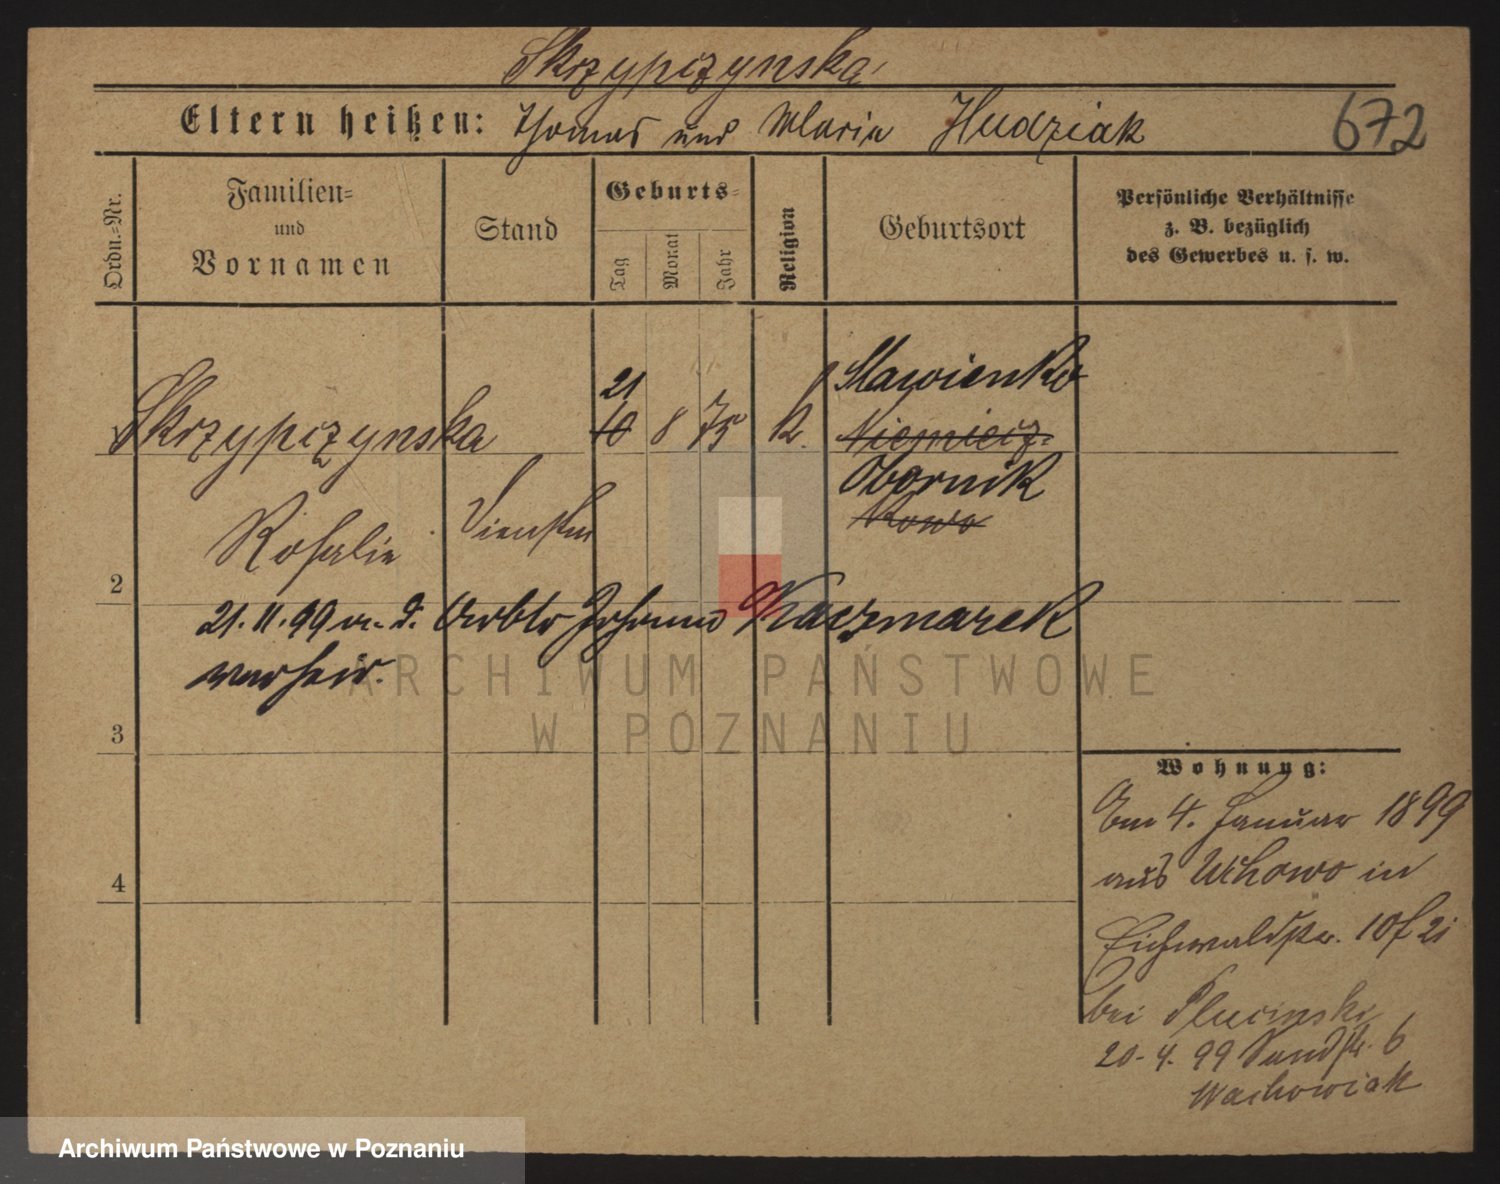 Skrzypczynska
Eltern heißen: Thomas und Maria Hudziak
672
Ordn.=Nr.
Familien=
und
Vornamen
Stand
Geburts=
Tag
Monat
Jahr
Religion
Geburtsort
Persönliche Verhältnisse
z. B. bezüglich
des Gewerbes u. s. w.
Slawienko
21
Skrzypczynska 10 8 75 K. Niemiecz-
Obornik
kowo
Rosalie Dienstm
2
21.11.99 m. d. Arbtr Johann Kaczmarek
verheir.
3
4
Wohnung:
Am 4. Januar 1899
aus Uchowo in
Eichwaldstr. 10 f 2i
bei Plucinski
20. 4. 99 Sandstr. 6
Wachowiak
ARCHIWUM PAŃSTWOWE
W POZNANIU
Archiwum Państwowe w Poznaniu